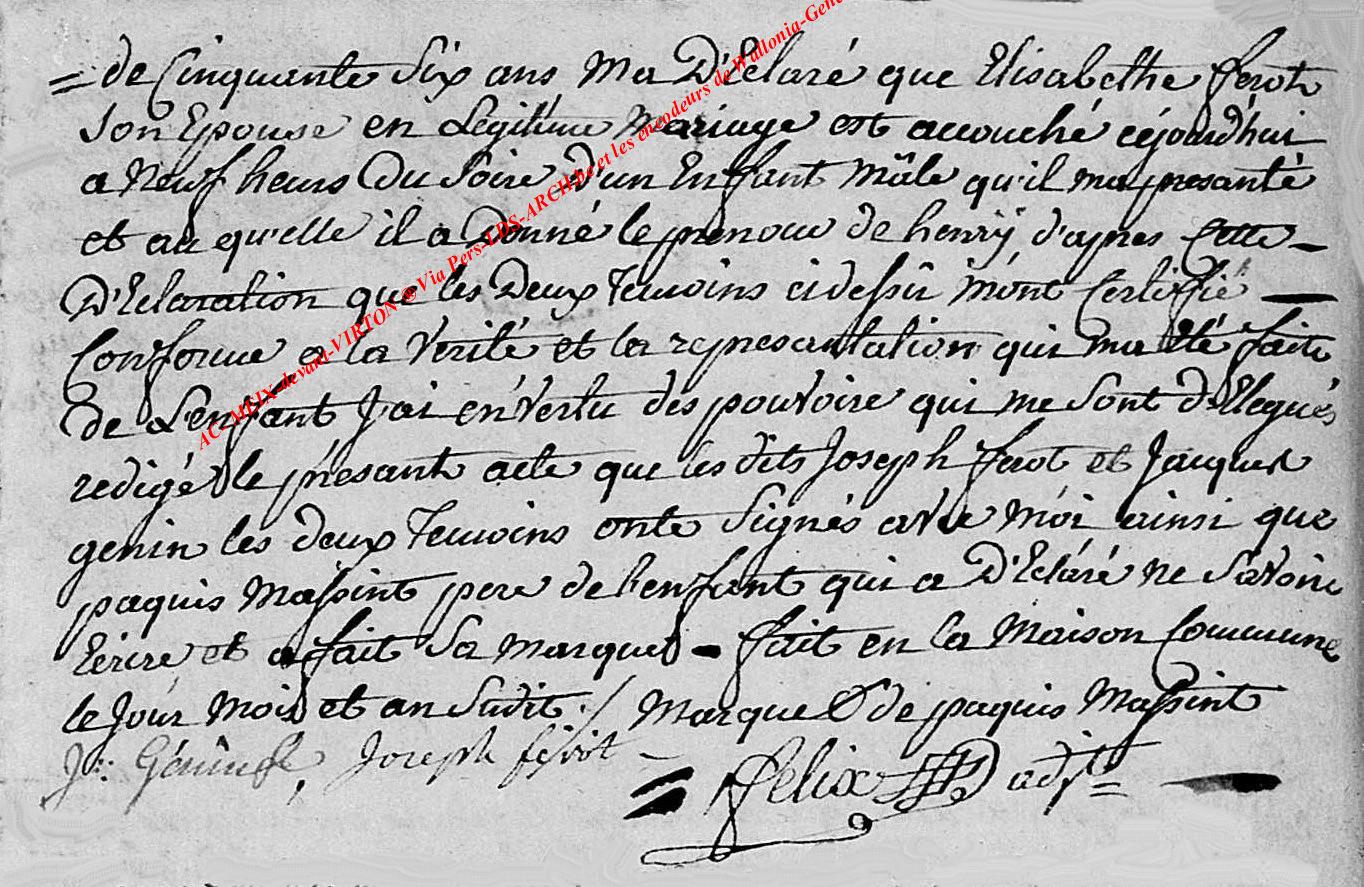 = de Cinquante Six ans Ma D'Eclaré que Elisabethe ferot
Son Epouse en Légitime Mariage est accouché céjourd'hui
a Neuf heurs Du Soire D'un Enfant Mâle qu'il ma presanté
et au qu'elle il a Donné le prenom de henrÿ d'apres Cette –
D'Eclaration que les Deux Temoins cidessû m'ont Certiffié –
Conforme a la Verité et la represantation qui ma été faite
de L'enfant J'ai en Vertu des pouvoire qui me Sont d'Elegués
redigé le présant acte que les dits Joseph ferot et Jacques
genin les deux Temoins onte Signés avec Moi ainsi que
paquis Massint pere de l'enfant qui a D'Eclaré ne Savoire
Ecrire et a fait Sa Marque – fait en la Maison Commune
le Jour Mois et an Sudit ./ Marque de paquis Massint
Joseph férot
felix adjt =
AC-MEIX-devant-VIRTON @ Via Pers-LDS-ARCH.be et les encodeurs de Wallonia-Gene